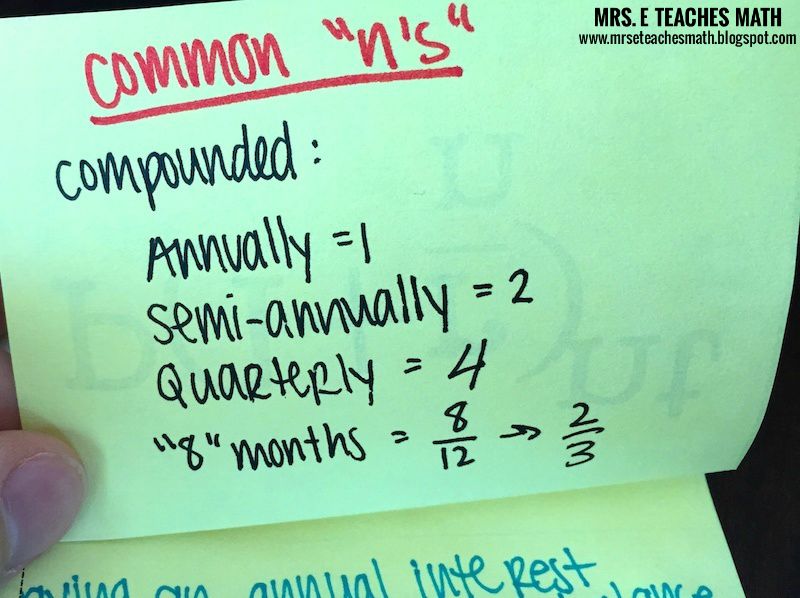 MRS. E TEACHES MATH
www.mrseteachesmath.blogspot.com
common "n's"
compounded:
Annually = 1
semi-annually = 2
Quarterly = 4
"8" months = 8/12 → 2/3
an annual interest